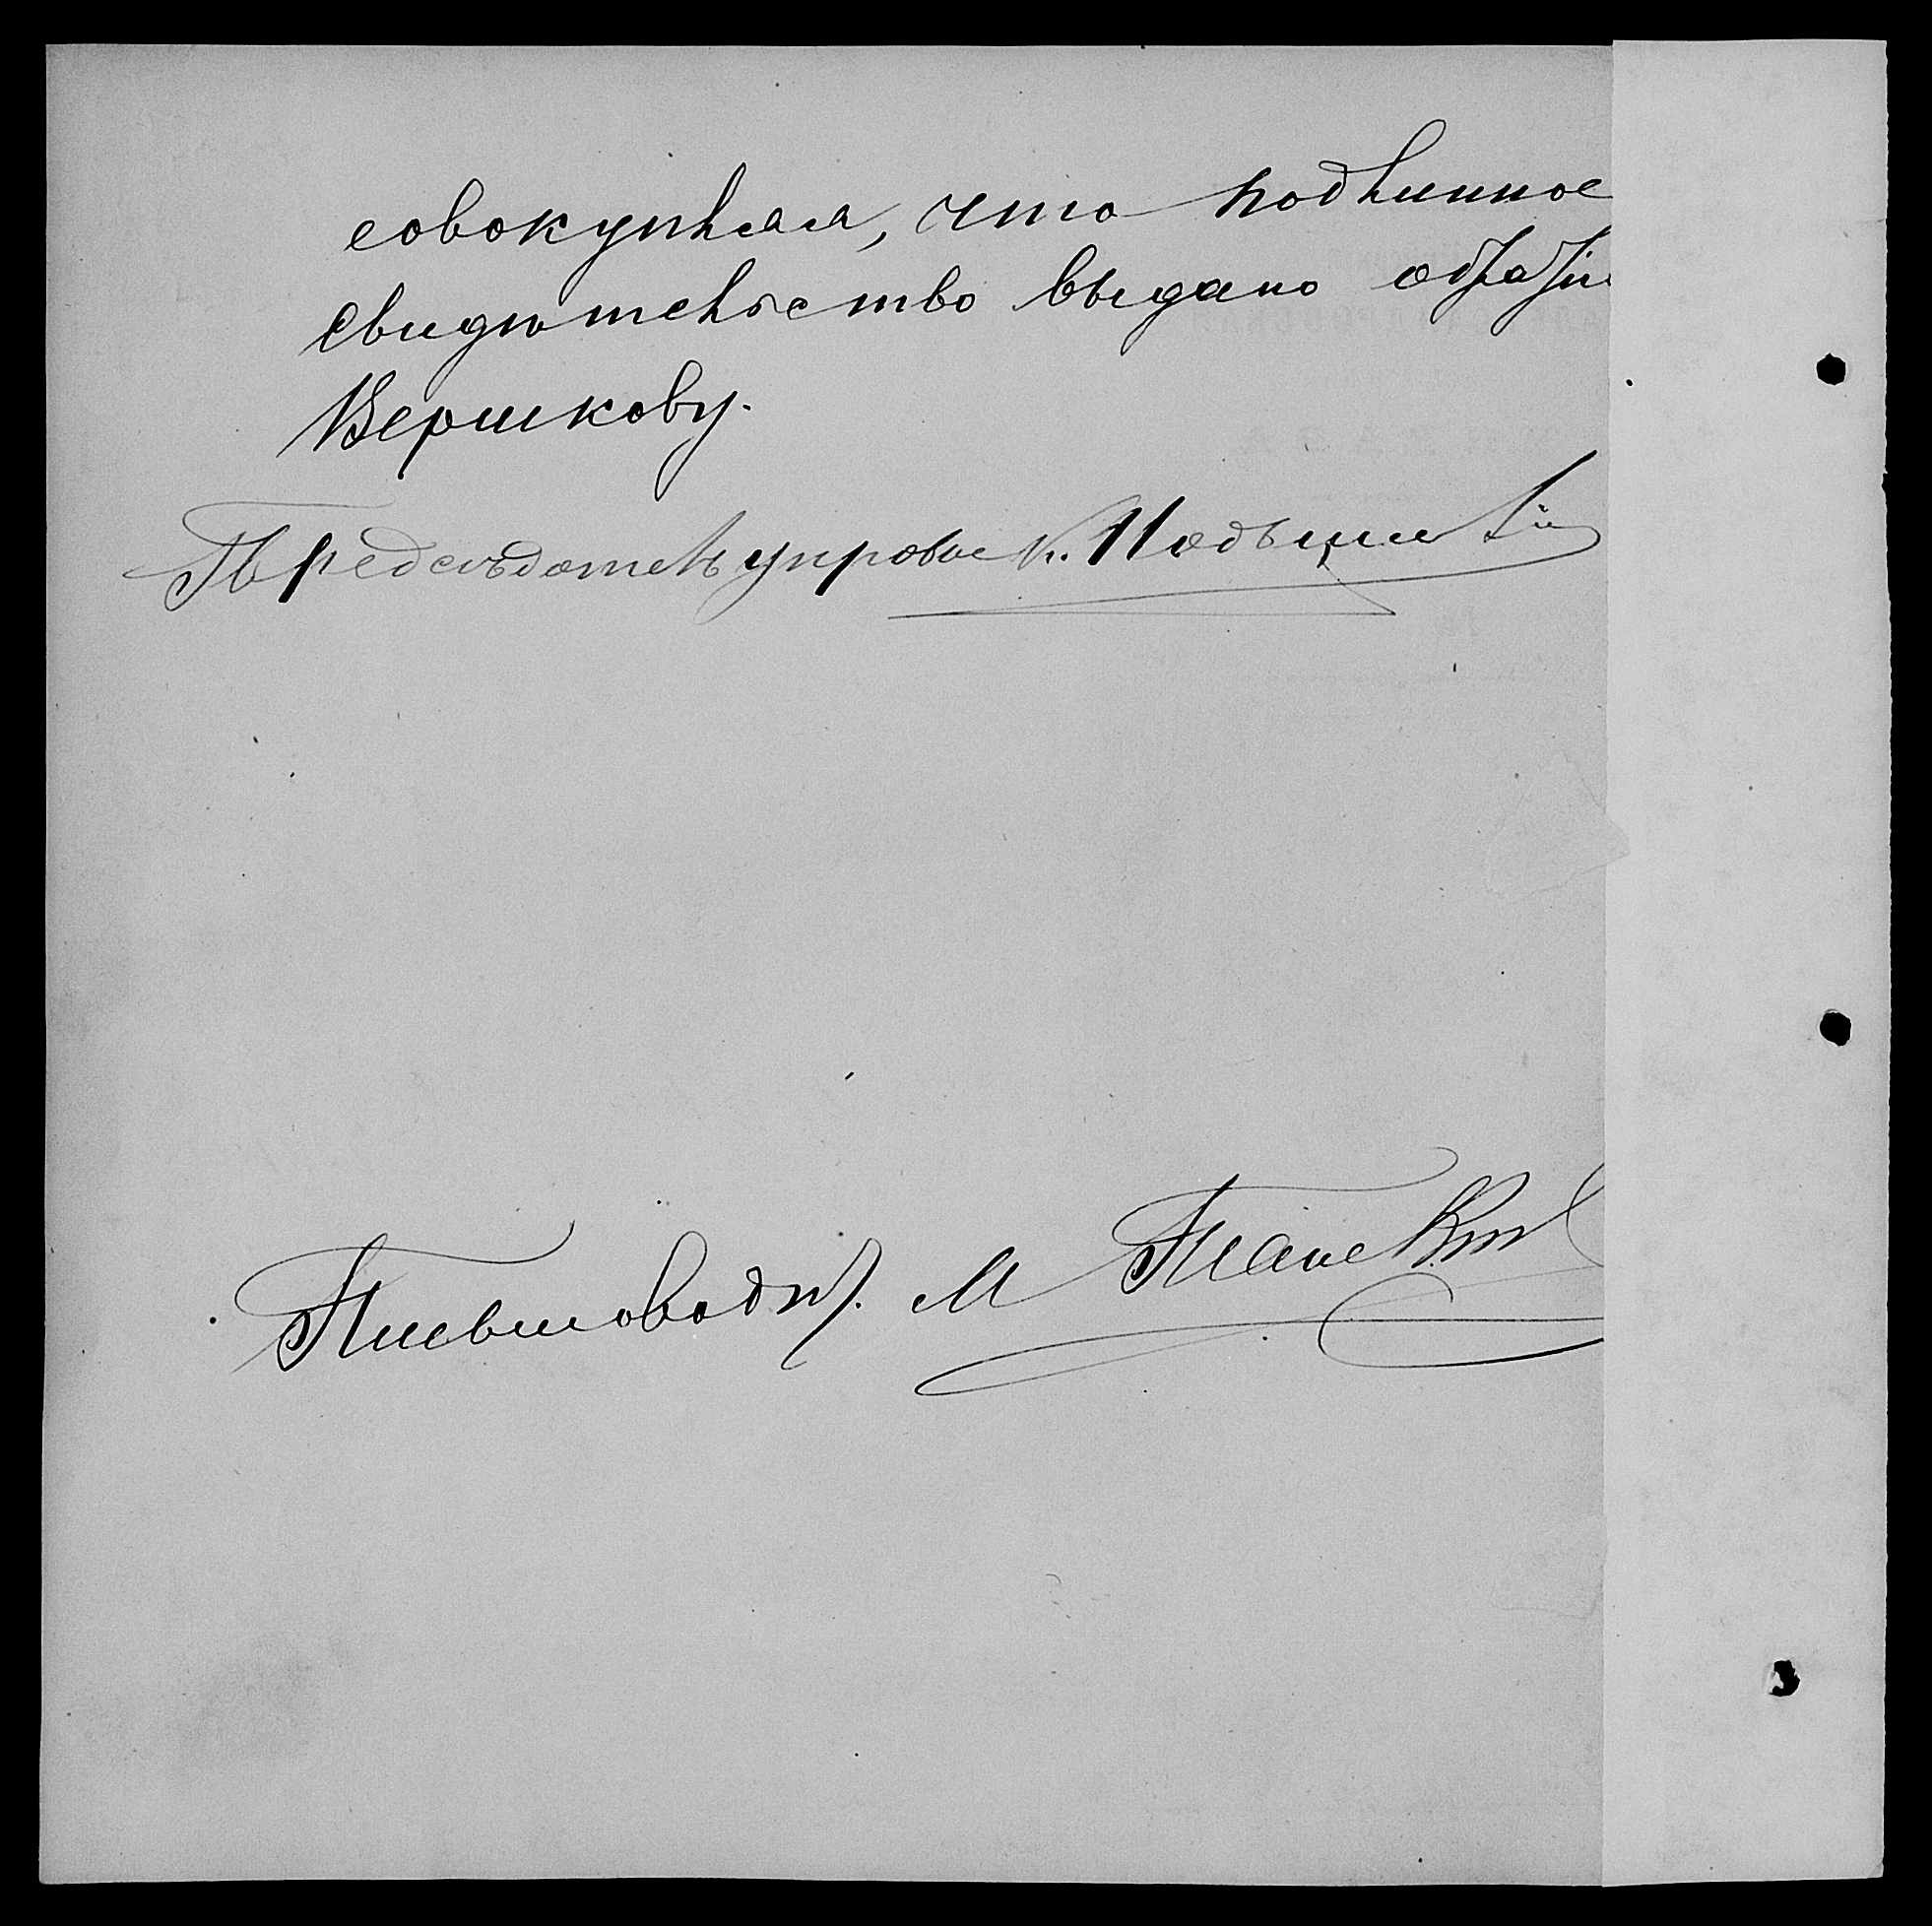 совокупляя, что подлинное
свидѣтельство выдано обрат
Вершкову.
Предсѣдатель управы
Письмоводит. М